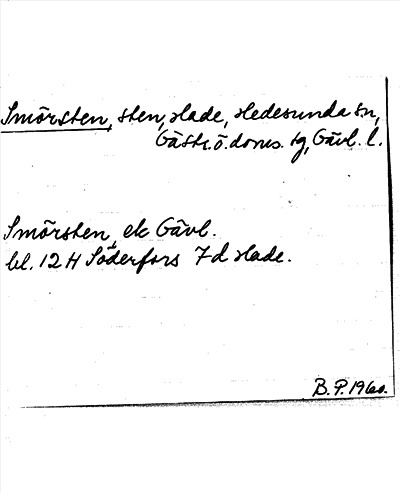 Smörsten, sten, Hade, Hedesunda sn,
Gästr. ö. doms. tg, Gävl. l.
Smörsten, ek Gävl.
bl. 12 H Söderfors 7 d Hade.
B. P. 1960.